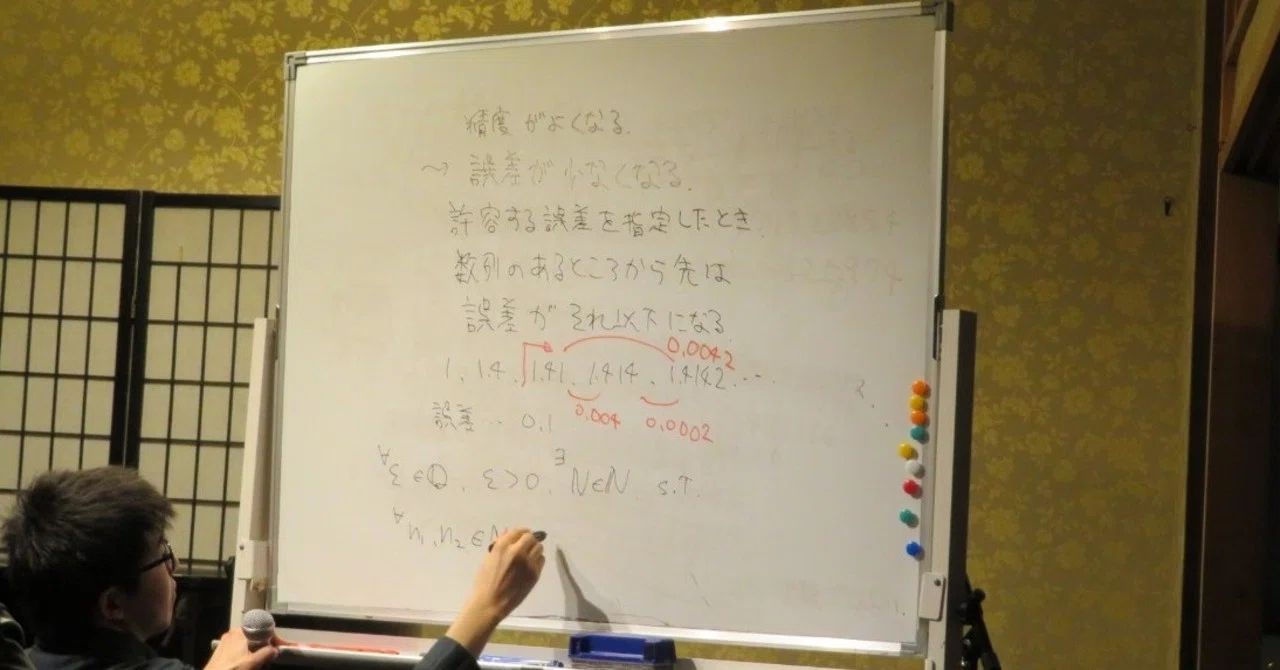 精度がよくなる.
〜 誤差が少なくなる.
許容する誤差を指定したとき.
数列のあるところから先は
誤差がそれ以下になる.
0.0042
1, 1.4, 1.41, 1.414, 1.4142, ...
誤差‥ 0.1 0.004 0.0002
∀ε∈Q, ε>0, ∃N∈N s.t.
∀n₁, n₂∈N